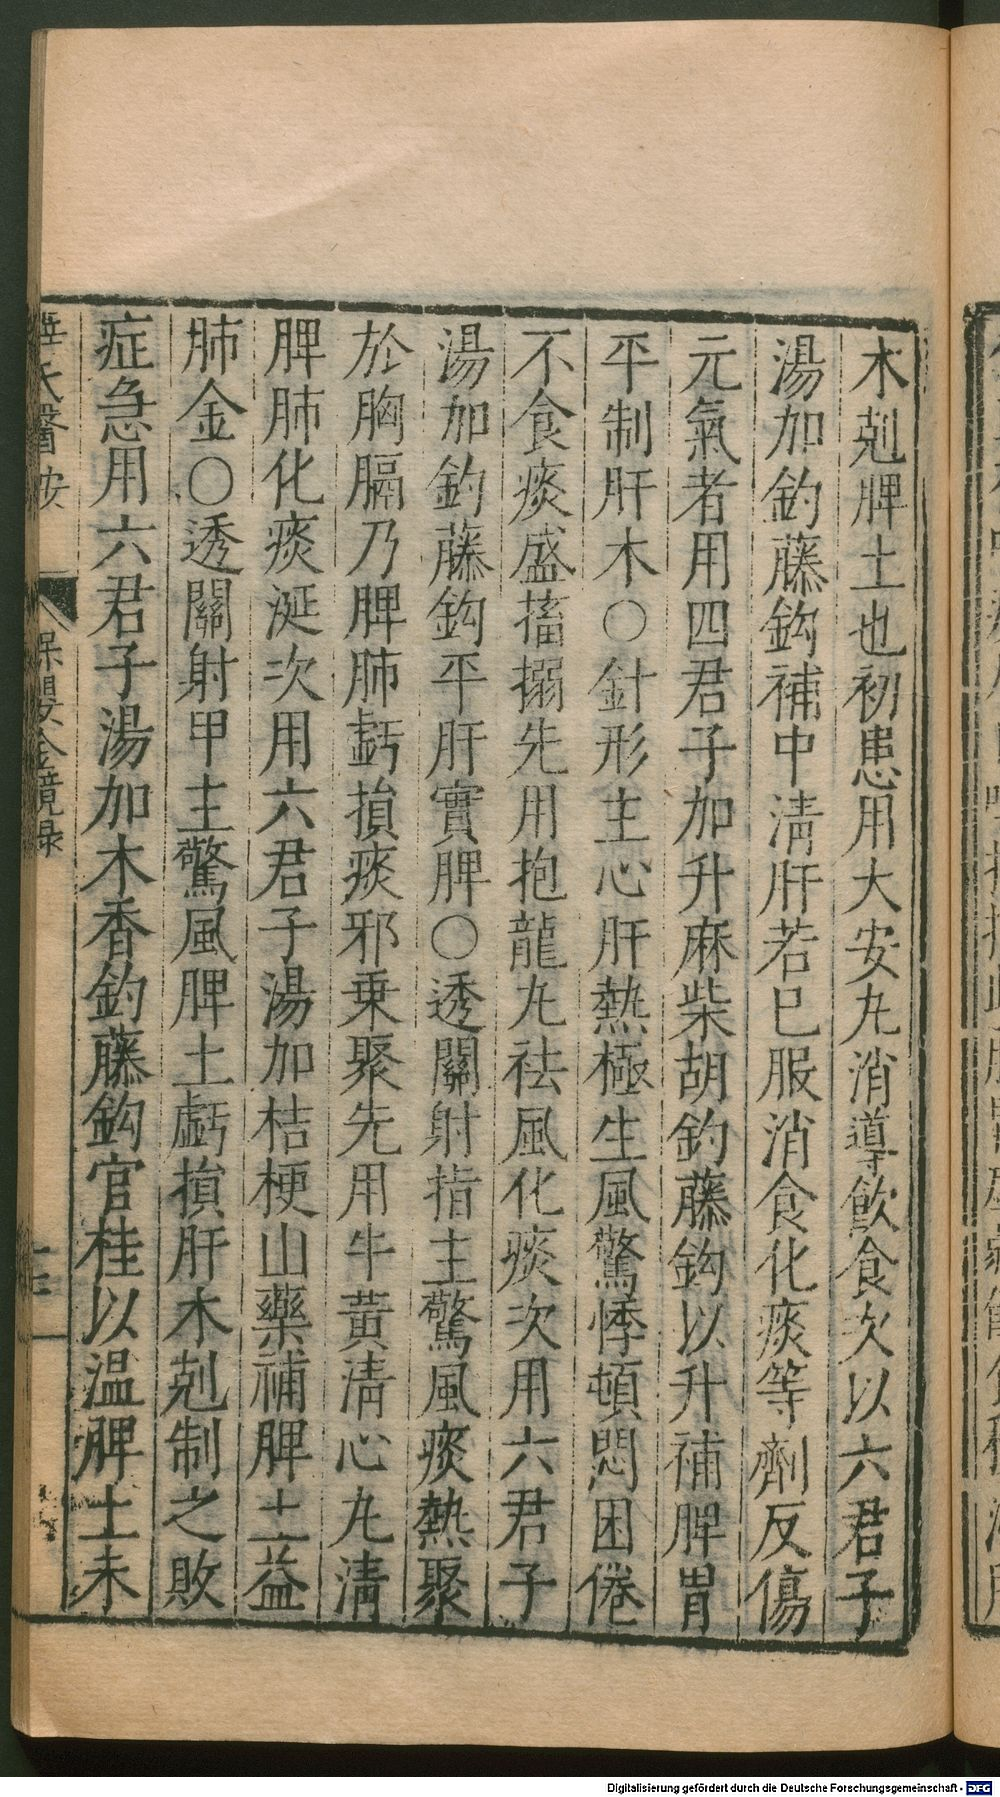 木剋脾土也初患用大安丸消導飲食次以六君子
湯加釣藤鈎補中清肝若已服消食化痰等劑反傷
元氣者用四君子加升麻柴胡釣藤鈎以升補脾胃
平制肝木○針形主心肝熱極生風驚悸頓悶困倦
不食痰盛搐搦先用抱龍丸祛風化痰次用六君子
湯加釣藤鈎平肝實脾○透關射指主驚風痰熱聚
於胸膈乃脾肺虧損痰邪乗聚先用牛黃清心丸清
脾肺化痰涎次用六君子湯加桔梗山藥補脾土益
肺金○透關射甲主驚風脾土虧損肝木剋制之敗
症急用六君子湯加木香釣藤鈎官桂以温脾土未
氏醫按 保嬰金鏡録
Digitalisierung gefördert durch die Deutsche Forschungsgemeinschaft - DFG